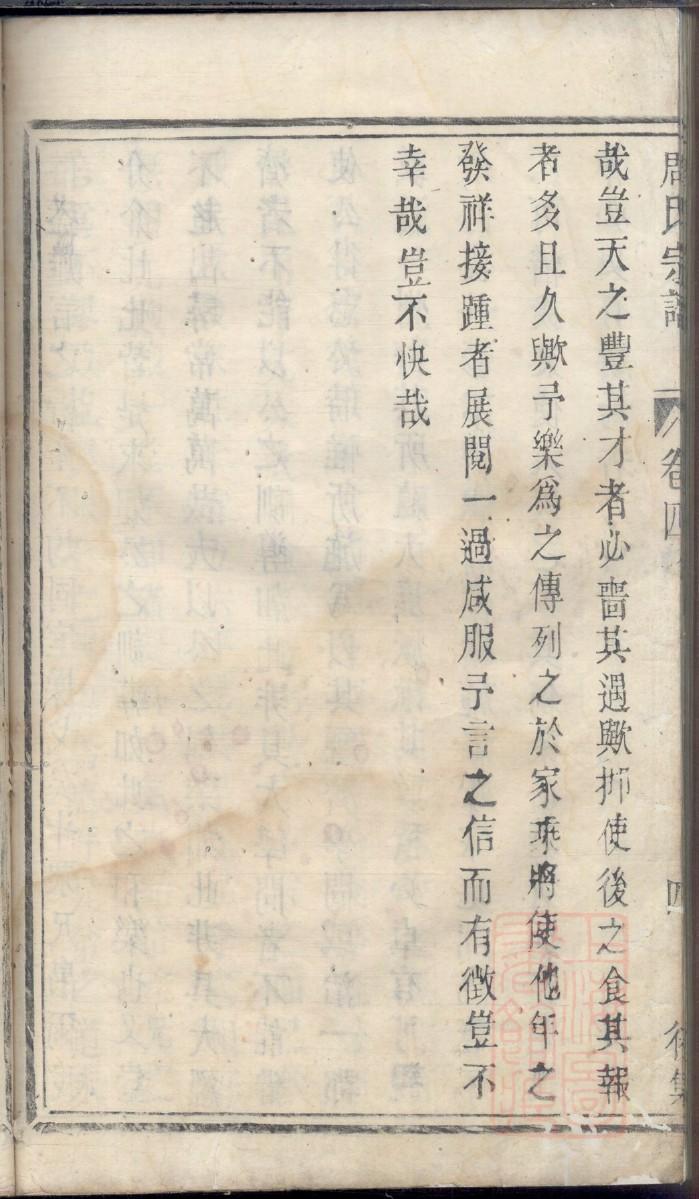 氏宗譜
卷四
四
哉豈天之豐其才者必嗇其遇歟抑使後之食其報
者多且久歟予樂爲之傳列之於家乘將使他年之
發祥接踵者展閱一過咸服予言之信而有徵豈不
幸哉豈不快哉